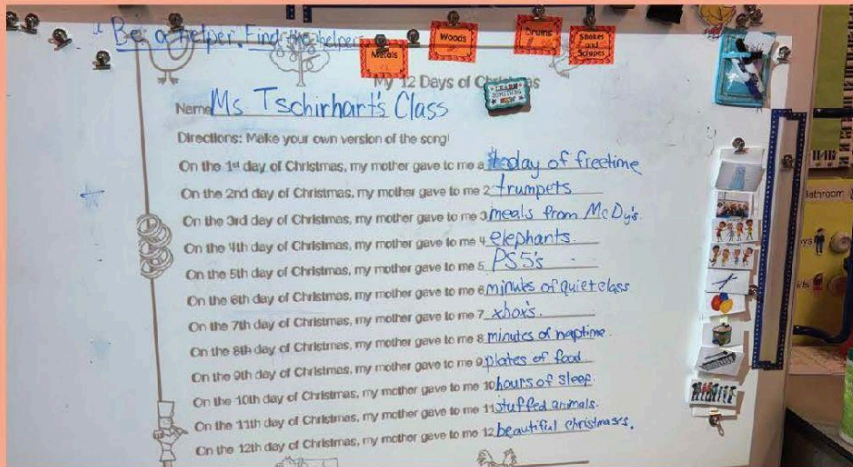 " Be a helper. Find the helper
Metals
Woods
Drums
Shakes and Scrapes
My 12 Days of Christmas
LEARN SOMETHING NEW
Name Ms Tschirhart's Class
Directions: Make your own version of the song!
On the 1st day of Christmas, my mother gave to me a day of freetime
On the 2nd day of Christmas, my mother gave to me 2 trumpets
On the 3rd day of Christmas, my mother gave to me 3 meals from McDy's.
On the 4th day of Christmas, my mother gave to me 4 elephants.
On the 5th day of Christmas, my mother gave to me 5 PS5's
On the 6th day of Christmas, my mother gave to me 6 minutes of quiet class
On the 7th day of Christmas, my mother gave to me 7 xbox's.
On the 8th day of Christmas, my mother gave to me 8 minutes of naptime.
On the 9th day of Christmas, my mother gave to me 9 plates of food.
On the 10th day of Christmas, my mother gave to me 10 hours of sleep.
On the 11th day of Christmas, my mother gave to me 11 stuffed animals.
On the 12th day of Christmas, my mother gave to me 12 beautiful christmas's.